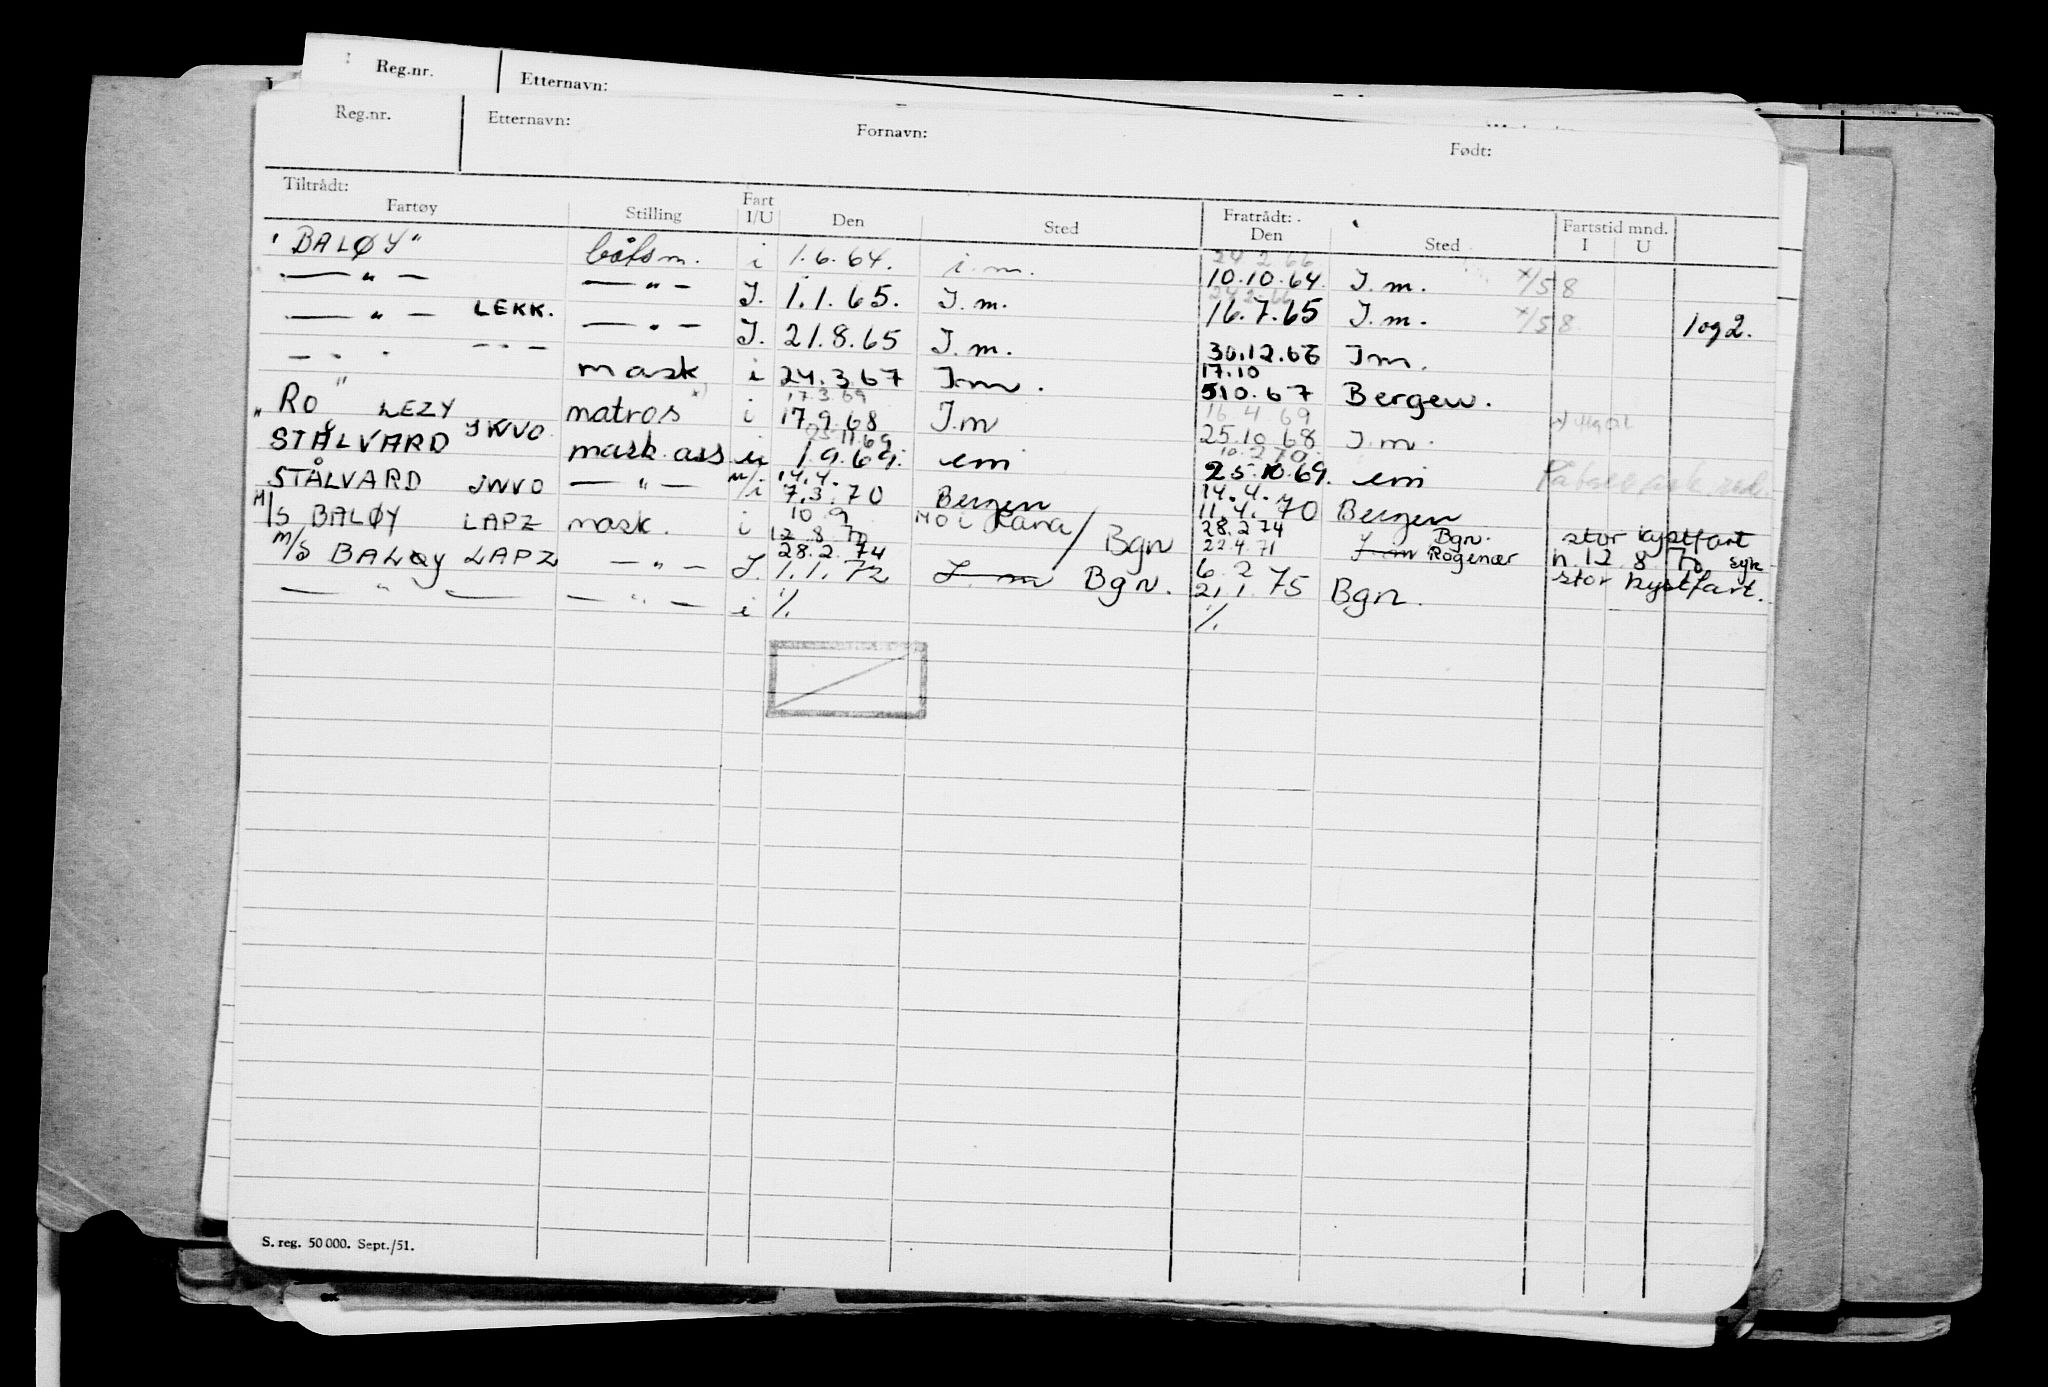 Reg.nr. Etternavn:
Reg.nr. Etternavn: Fornavn: Født:
Tiltrådt: Fartøy Stilling Fart I/U Den Sted Fratrådt: Den Sted Fartstid mnd. I U
"BALØY" båtsm. i 1.6.64. i.m. 24 2 66 10.10.64 I.m. x/58
— " — — " — I. 1.1.65. I.m. 16.7.65 I.m. x/58 1og2.
— " — LEKK. — " — I. 21.8.65 I.m. 30.12.66 Im.
— " — — " — mask i 24.3.67 Im. 17.10 510.67 Bergen.
"RO" LEZY matros i 17.3.69 17.9.68 I.m 16 4 69 25.10 68 I.m.
STÅLVARD JWVO mask.ass u 25.11.69 1.9.69. emi 10.2 70. 25.10.69. emi
STÅLVARD JWVO — " — u/i 14.4. 7.3.70 Bergen 14.4. 11.4.70 Bergen
M/S BALØY LAPZ mask. i 10 9 12.8.70 MO i Rana / Bgn 28.2 74 22.4.71 I.m Bgn. Rogenær stor kystfart
M/S BALØY LAPZ — " — I. 28.2.74 1.1.72 I.m Bgn. 6.2 2.1.75 Bgn. n.12.8.70 syk stor kystfart.
— " — — " — i ./. ./.
S. reg. 50 000. Sept./51.